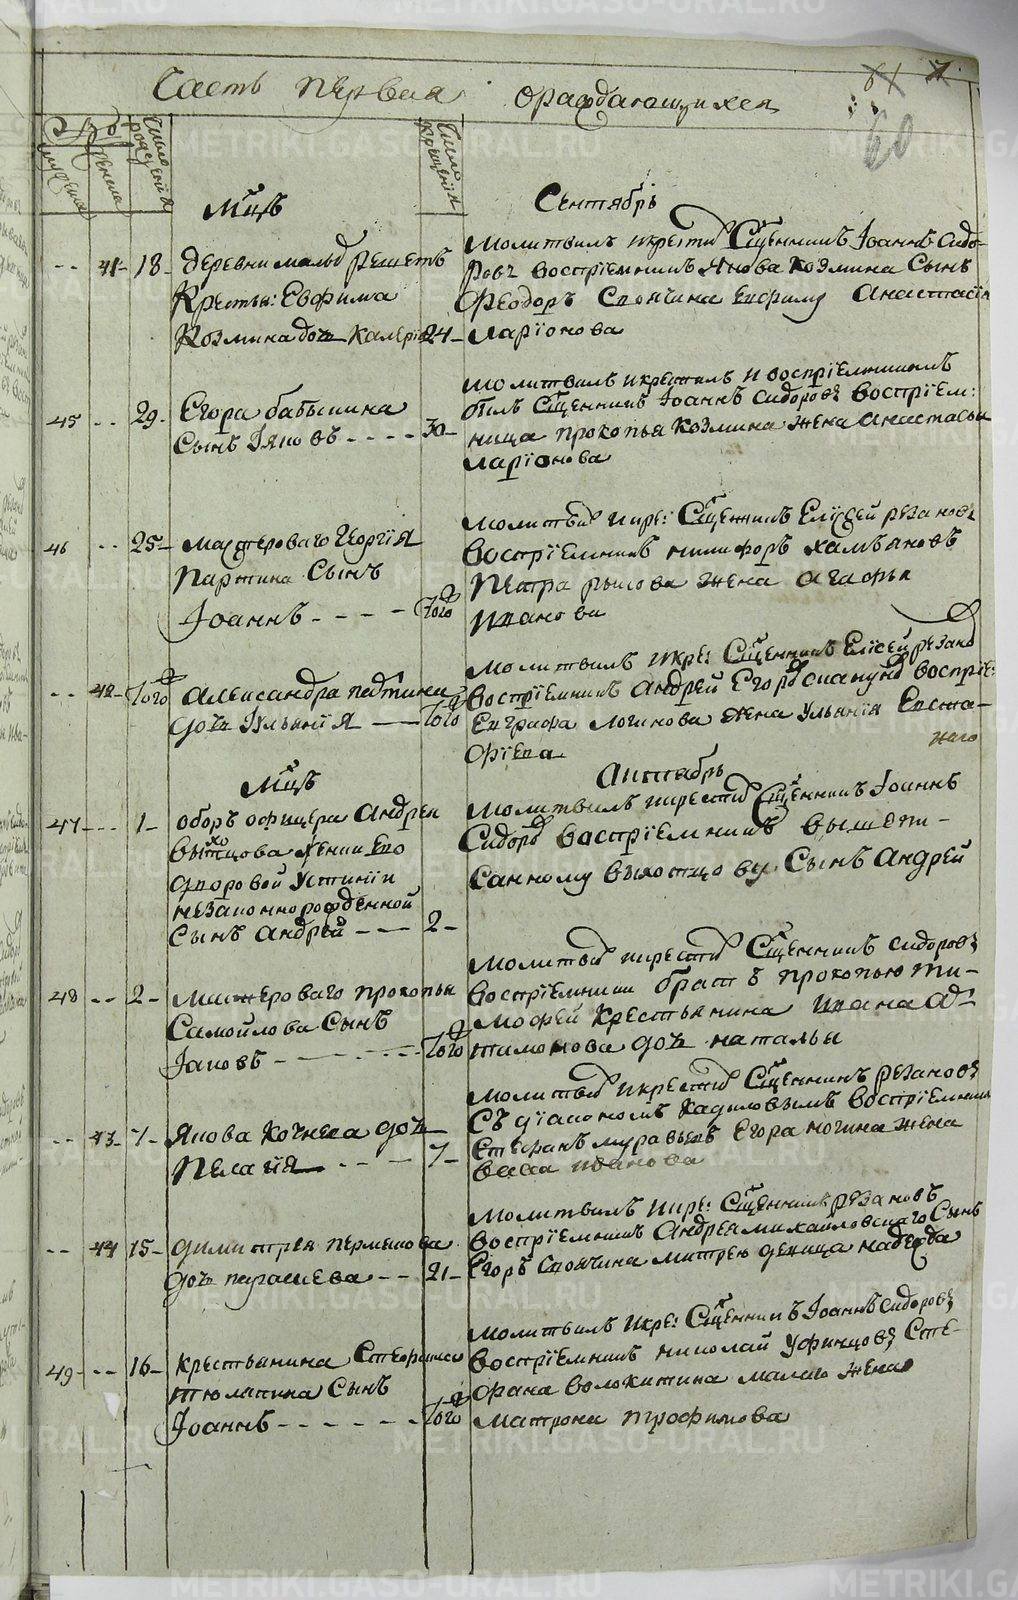 Часть первая ораждающихся
81
60
Число рождения
Число крещения
Мцъ Сентябрь
41 18 деревни малыхъ решетъ
Крестья: Евфима
Козмина дочь Калерия 24
Молитвилъ икрестилъ Сщенникъ Іоаннъ Сидо-
ровъ воспріемникъ Якова Козмина Сынъ
Феодоръ Анастасія
ларіонова
45 29 Егора бабкина
Сынъ Іяковъ 30
Молитвилъ икрестилъ и воспріемникомъ
былъ Сщенникъ Іоаннъ Сидоровъ воспріем:
ница прокопья козмина жена анастасья
ларіонова
46 25 мастероваго Георгія
Паршина Сынъ
Іоаннъ того
Молитвилъ икре: Сщенникъ Елисей резановъ
воспріемникъ никифоръ
Петра рыкова жена агафья
иванова
42 того александра
дочь Іульянія того
Молитвилъ икре: Сщенникъ Елісей резано
воспріемникъ андрей Егоровъ воспріе:
Евграфа логинова жена ульянія Евста-
фіева
Мцъ Октябрь
47 1 оборъ офицера Андрея
незаконнорожденной
Сынъ андрей 2
Молитвилъ икрестилъ Сщенникъ Іоаннъ
Сидоровъ воспріемникъ вышепи-
санному Сынъ андрей
48 2 мастероваго прокопья
Самойлова Сынъ
Іаковъ того
Молитвилъ икрестилъ Сщенникъ сидоровъ
воспріемники братъ прокопью ти-
мофей крестьянина ивана
дочь наталья
43 7 Якова Кочнева дочь
Пелагия 7
Молитвилъ икрестилъ Сщенникъ резановъ
Съ діакономъ кадиловымъ воспріемникъ
Стефанъ муравьевъ Егора ногина жена
васса иванова
44 15 димитрея пермекова
дочь параскева 21
Молитвилъ икре: Сщенникъ резановъ
воспріемникъ андрея михайловскаго Сынъ
Егоръ митрею девица надежда
49 16 крестьянина Стефана
Сынъ
Іоаннъ того
Молитвилъ икре: Сщенникъ Іоаннъ сидоровъ
воспріемникъ николай уфинцовъ Сте-
фана волокитина жена
матрона трофимова
METRIKI.GASO-URAL.RU